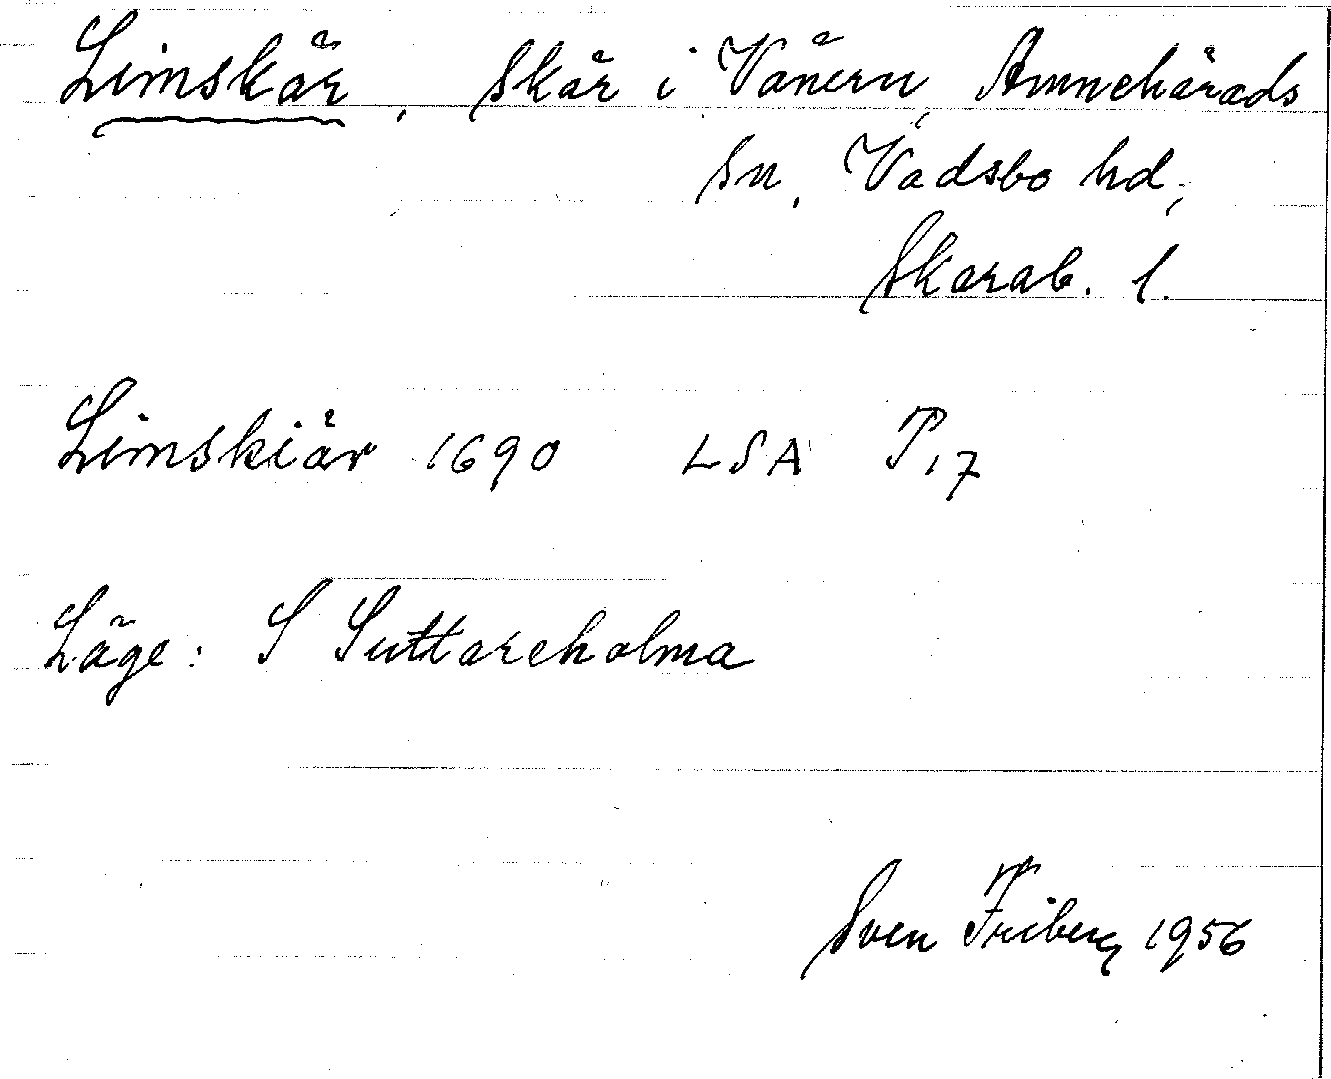 Limskär, skär i Vänern, Amnehärads
sn, Vadsbo hd,
Skarab. l.
Limskiär 1690 LSA P17
Läge: S Suttareholma
Sven Friberg 1956